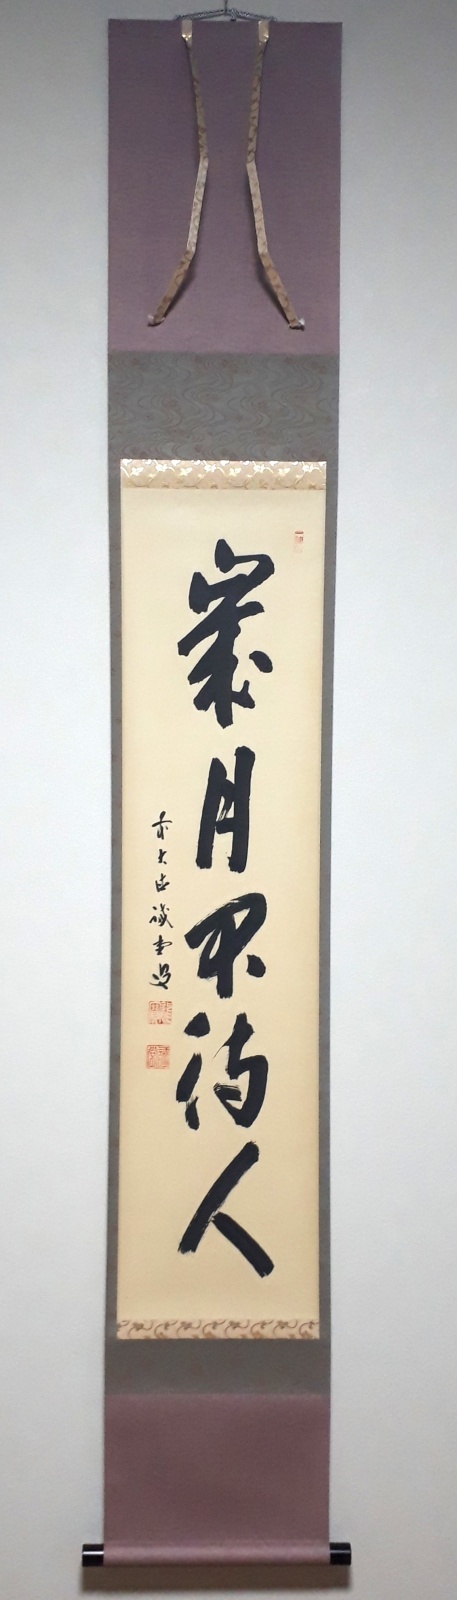 歳月不待人
前大徳誡堂書